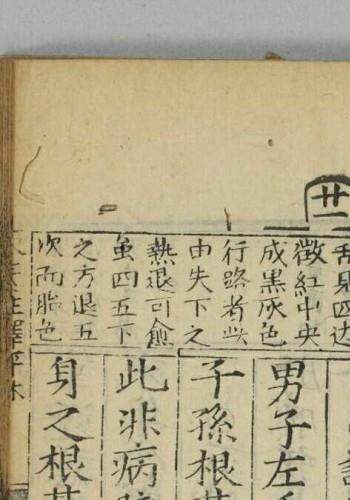 舌見四边
微紅中央
成黑灰色
行路者此
由失下之
熱退可愈
虽四五下
之方退五
次而胎色
男子左
子孫根
此非病
身之根
註釋评林